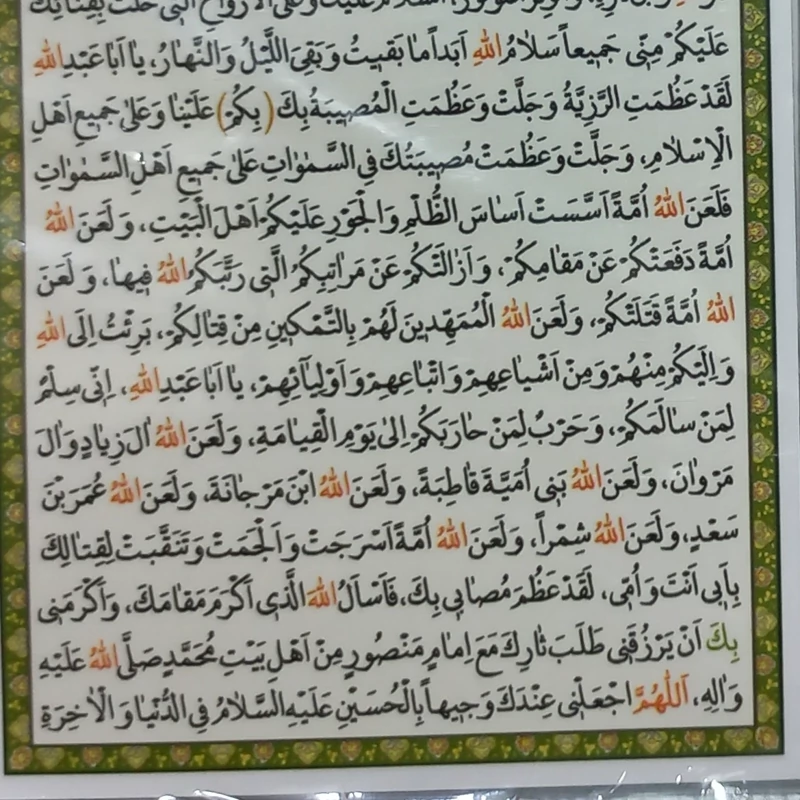 عَلَيْكَ وَعَلَى الْاَرْوَاحِ الَّتى حَلَّتْ بِفِنَائِكَ
عَلَيْكُمْ مِنّى جَميعاً سَلَامُ اللهِ اَبَداً مَا بَقيتُ وَبَقِىَ اللَّيْلُ وَالنَّهَارُ، يَا اَبَا عَبْدِ اللهِ
لَقَدْ عَظُمَتِ الرَّزِيَّةُ وَجَلَّتْ وَعَظُمَتِ الْمُصيبَةُ بِكَ (بِكُمْ) عَلَيْنَا وَعَلى جَميعِ اَهْلِ
الْاِسْلَامِ، وَجَلَّتْ وَعَظُمَتْ مُصيبَتُكَ فِى السَّمٰوَاتِ عَلى جَميعِ اَهْلِ السَّمٰوَاتِ
فَلَعَنَ اللهُ اُمَّةً اَسَّسَتْ اَسَاسَ الظُّلْمِ وَالْجَوْرِ عَلَيْكُمْ اَهْلَ الْبَيْتِ، وَلَعَنَ اللهُ
اُمَّةً دَفَعَتْكُمْ عَنْ مَقَامِكُمْ، وَاَزَالَتْكُمْ عَنْ مَرَاتِبِكُمُ الَّتى رَتَّبَكُمُ اللهُ فيهَا، وَلَعَنَ
اللهُ اُمَّةً قَتَلَتْكُمْ، وَلَعَنَ اللهُ الْمُمَهِّدينَ لَهُمْ بِالتَّمْكينِ مِنْ قِتَالِكُمْ، بَرِئْتُ اِلَى اللهِ
وَاِلَيْكُمْ مِنْهُمْ وَمِنْ اَشْيَاعِهِمْ وَاَتْبَاعِهِمْ وَاَوْلِيَائِهِمْ، يَا اَبَا عَبْدِ اللهِ، اِنّى سِلْمٌ
لِمَنْ سَالَمَكُمْ، وَحَرْبٌ لِمَنْ حَارَبَكُمْ اِلى يَوْمِ الْقِيَامَةِ، وَلَعَنَ اللهُ الَ زِيَادٍ وَالَ
مَرْوَانَ، وَلَعَنَ اللهُ بَنى اُمَيَّةَ قَاطِبَةً، وَلَعَنَ اللهُ ابْنَ مَرْجَانَةَ، وَلَعَنَ اللهُ عُمَرَ بْنَ
سَعْدٍ، وَلَعَنَ اللهُ شِمْراً، وَلَعَنَ اللهُ اُمَّةً اَسْرَجَتْ وَاَلْجَمَتْ وَتَنَقَّبَتْ لِقِتَالِكَ
بِاَبى اَنْتَ وَاُمّى، لَقَدْ عَظُمَ مُصَابى بِكَ، فَاَسْاَلُ اللهَ الَّذى اَكْرَمَ مَقَامَكَ، وَاَكْرَمَنى
بِكَ اَنْ يَرْزُقَنى طَلَبَ ثَارِكَ مَعَ اِمَامٍ مَنْصُورٍ مِنْ اَهْلِ بَيْتِ مُحَمَّدٍ صَلَّى اللهُ عَلَيْهِ
وَالِهِ، اَللّهُمَّ اجْعَلْنى عِنْدَكَ وَجيهاً بِالْحُسَيْنِ عَلَيْهِ السَّلَامُ فِى الدُّنْيَا وَالْاخِرَةِ